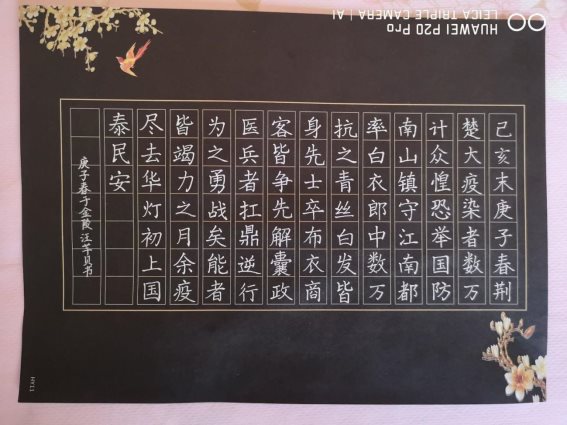 己亥末庚子春荆
楚大疫染者数万
计众惶恐举国防
南山镇守江南都
率白衣郎中数万
抗之青丝白发皆
身先士卒布衣商
客皆争先解囊政
医兵者扛鼎逆行
为之勇战矣能者
皆竭力之月余疫
尽去华灯初上国
泰民安
庚子春于金葭汪芊贝书
HYLI
HUAWEI P20 Pro
LEICA TRIPLE CAMERA | AI